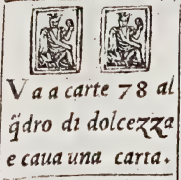 Va a carte 78 al
q̃dro di dolcezza
e caua una carta.